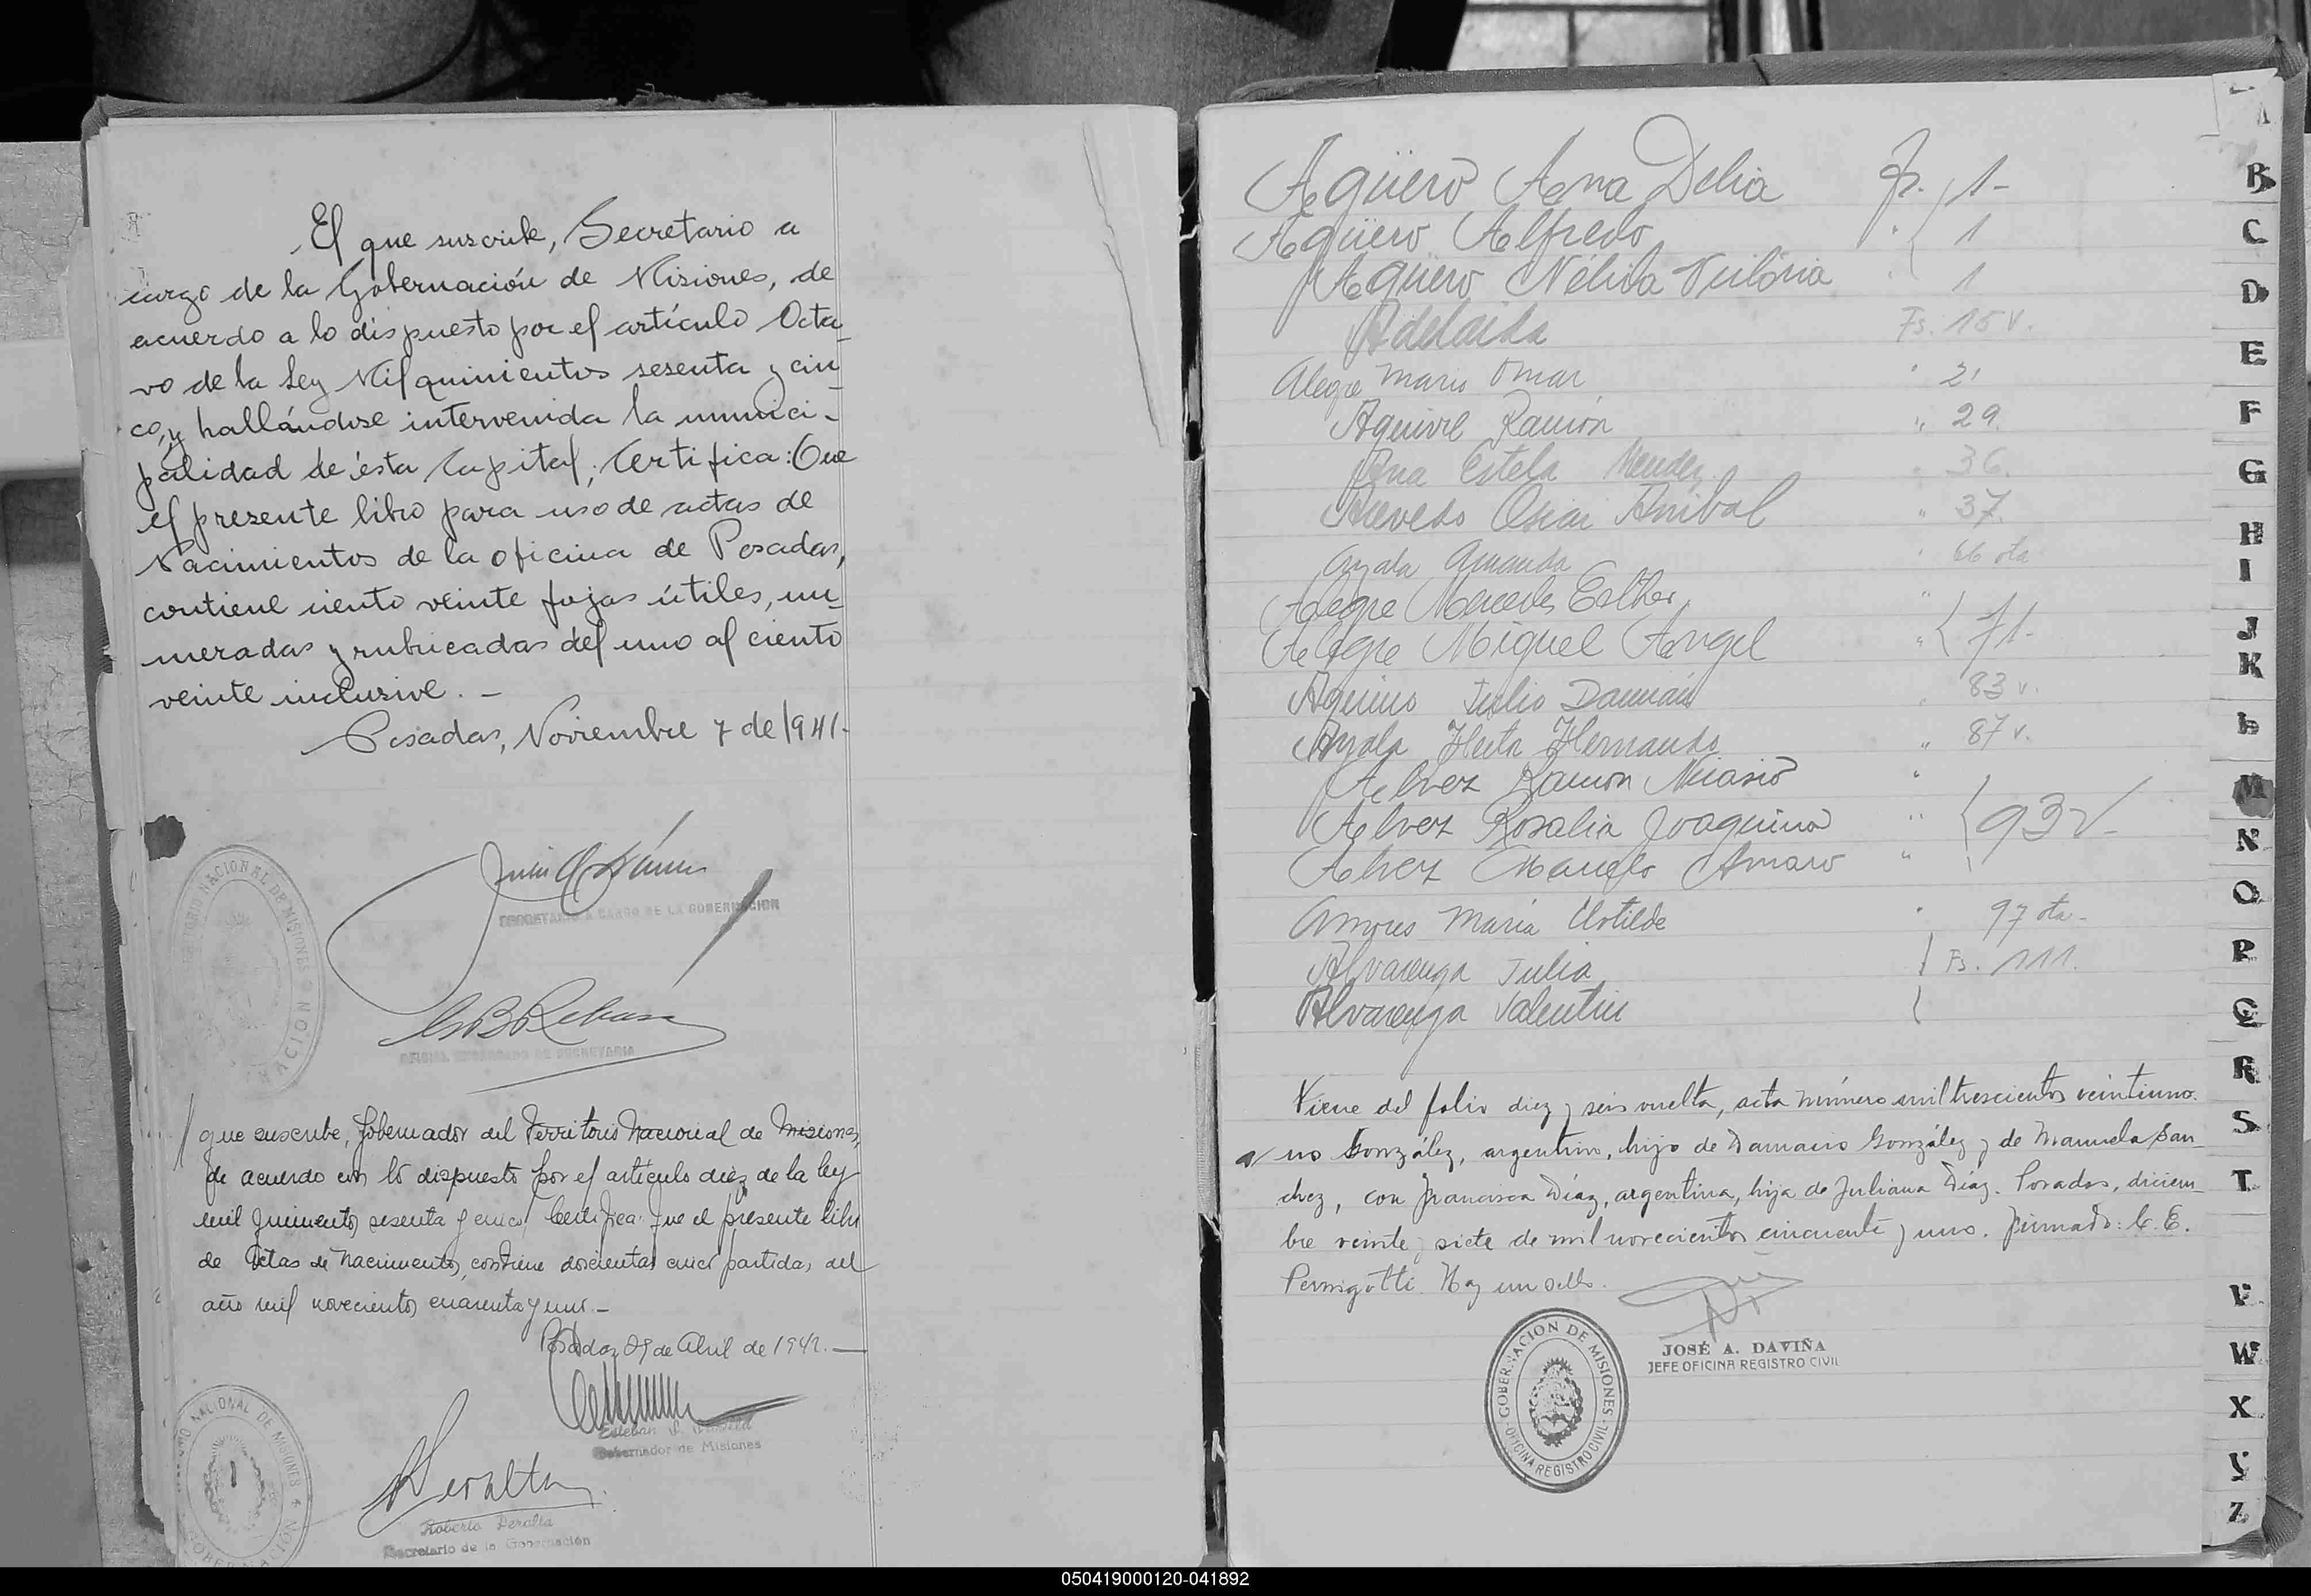 El que suscribe, Secretario a
cargo de la Gobernación de Misiones, de
acuerdo a lo dispuesto por el artículo Octa-
vo de la Ley Mil quinientos sesenta y cin-
co, y hallándose intervenida la munici-
palidad de ésta Capital, Certifica: Que
el presente libro para uso de actas de
Nacimientos de la oficina de Posadas,
contiene ciento veinte fojas útiles, nu-
meradas y rubricadas del uno al ciento
veinte inclusive. -
Posadas, Noviembre 7 de 1941.-
SECRETARIO A CARGO DE LA GOBERNACION
OFICIAL ENCARGADO DE SECRETARIA
NACIONAL DE MISIONES
que suscribe, Gobernador del Territorio Nacional de Misiones,
de acuerdo con lo dispuesto por el artículo diez de la ley
mil quinientos sesenta y cinco, Certifica: que el presente libro
de Actas de Nacimientos, contiene doscientas cinco partidas del
año mil novecientos cuarenta y uno.-
Posadas, de Abril de 1942.-
Esteban
Gobernador de Misiones
Peralta
Roberto Peralta
Secretario de la Gobernación
NACIONAL DE MISIONES
Agüero Ana Delia Fs. 1-
Agüero Alfredo " 1
Agüero Nélida Vitoria " 1
Adelaida Fs. 15 v.
Alegre Mario Omar " 21
Aguirre Ramón " 29.
Ana Estela Mendez " 36.
Acevedo Oscar Anibal " 37.
Ayala Amanda " 66 vta
Alegre Mercedes Esther "
Alegre Miguel Angel " 71-
Aquino Julio Damián " 83 v.
Ayala Hector Hernando " 87 v.
Alvez Ramon Nicasio "
Alvez Rosalia Joaquina " 93 v-
Alvez Marcelo Amaro "
Amores María Clotilde " 97 vta-
Alvarenga Julia Fs. 111.
Alvarenga Valentin
Viene del folio diez y seis vuelta, acta número mil trescientos veintiuno.
no González, argentino, hijo de Damacio González y de Manuela San-
chez, con Francisca Díaz, argentina, hija de Juliana Díaz. Posadas, diciem-
bre veinte y siete de mil novecientos cincuenta y uno. Firmado: C. E.
Pernigotti. Hay un sello.
JOSÉ A. DAVIÑA
JEFE OFICINA REGISTRO CIVIL
GOBERNACION DE MISIONES
OFICINA REGISTRO CIVIL
A
B
C
D
E
F
G
H
I
J
K
L
M
N
O
P
Q
R
S
T
V
W
X
Y
Z
050419000120-041892